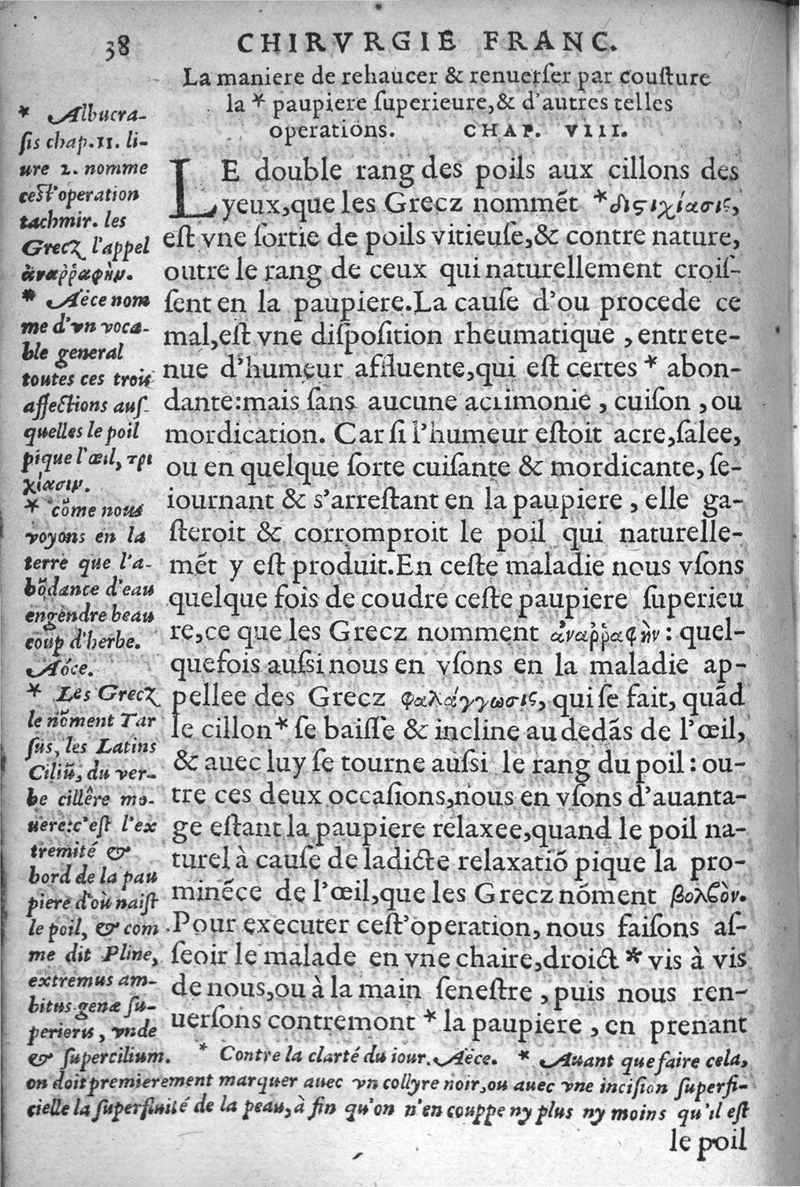 38 CHIRVRGIE FRANC.
La maniere de rehaucer & renuerſer par couſture
la * paupiere ſuperieure,& d'autres telles
operations. CHAP. VIII.
LE double rang des poils aux cillons des
yeux,que les Grecz nommẽt *διςιχίασις,
eſt vne ſortie de poils vitieuſe,& contre nature,
outre le rang de ceux qui naturellement croiſ-
ſent en la paupiere.La cauſe d'ou procede ce
mal,eſt vne diſpoſition rheumatique , entrete-
nue d'humeur affluente,qui eſt certes * abon-
dante:mais ſans aucune acrimonie , cuiſon ,ou
mordication. Car ſi l'humeur eſtoit acre,ſalee,
ou en quelque ſorte cuiſante & mordicante, ſe-
iournant & s'arreſtant en la paupiere , elle ga-
ſteroit & corromproit le poil qui naturelle-
mẽt y eſt produit.En ceſte maladie nous vſons
quelque fois de coudre ceſte paupiere ſuperieu
re,ce que les Grecz nomment ἀναῤῥαφὴν : quel-
quefois auſsi nous en vſons en la maladie ap-
pellee des Grecz φαλάγγωσις, qui ſe fait, quãd
le cillon* ſe baiſſe & incline au dedãs de l'œil,
& auec luy ſe tourne auſsi le rang du poil : ou-
tre ces deux occaſions,nous en vſons d'auanta-
ge eſtant la paupiere relaxee,quand le poil na-
turel à cauſe de ladicte relaxatiõ pique la pro-
minẽce de l'œil,que les Grecz nõment βολβὸν.
Pour executer ceſt'operation, nous faiſons aſ-
ſeoir le malade en vne chaire,droict * vis à vis
de nous,ou à la main ſeneſtre , puis nous ren-
uerſons contremont * la paupiere , en prenant
* Albucra-
ſis chap.11. li-
ure 2. nomme
ceſt'operation
tachmir. les
Grecz l'appel
ἀναῤῥαφὴν.
* Aëce nom
me d'vn voca-
ble general
toutes ces trois
affections auſ-
quelles le poil
pique l'œil, τρι
χίασιν.
* cõme nous
voyons en la
terre que l'a-
bõdance d'eau
engendre beau
coup d'herbe.
Aëce.
* Les Grecz
le nõment Tar
ſus, les Latins
Ciliũ, du ver-
be cillêre mo-
uere:c'eſt l'ex
tremité &
bord de la pau
piere d'où naiſt
le poil, & com
me dit Pline,
extremus am-
bitus genæ ſu-
perioris, vnde
& ſupercilium. * Contre la clarté du iour. Aëce. * Auant que faire cela,
on doit premierement marquer auec vn collyre noir,ou auec vne inciſion ſuperfi-
cielle la ſuperfluité de la peau,à fin qu'on n'en couppe ny plus ny moins qu'il eſt
le poil